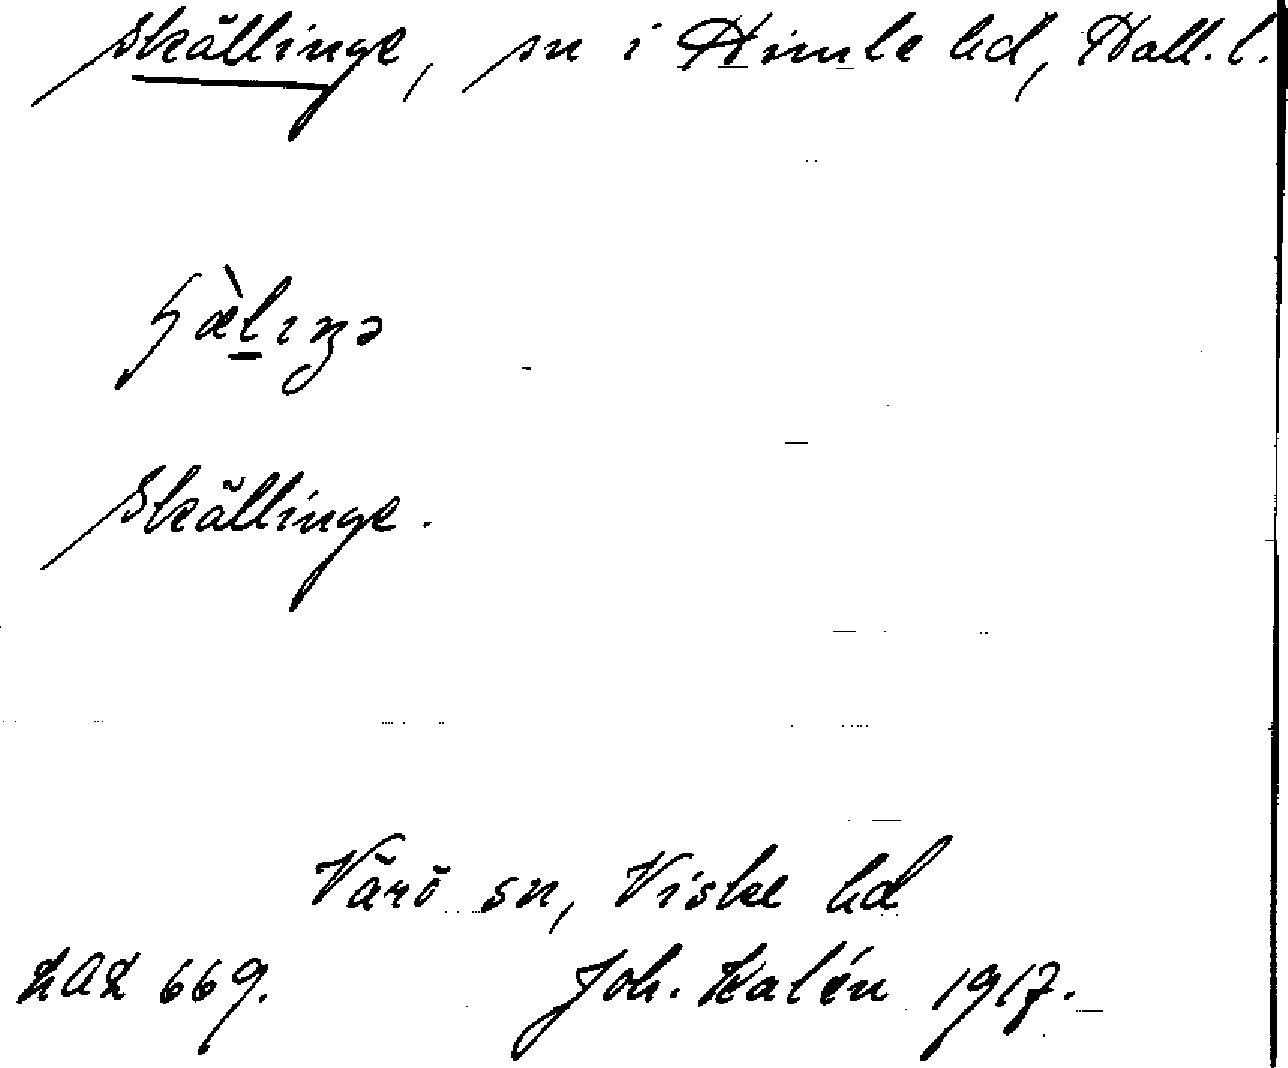 Skällinge, sn i Himle hd, Hall. l.
Skällinge.
Värö sn, Viske hd
LAL 669. Joh. Kalén 1917.